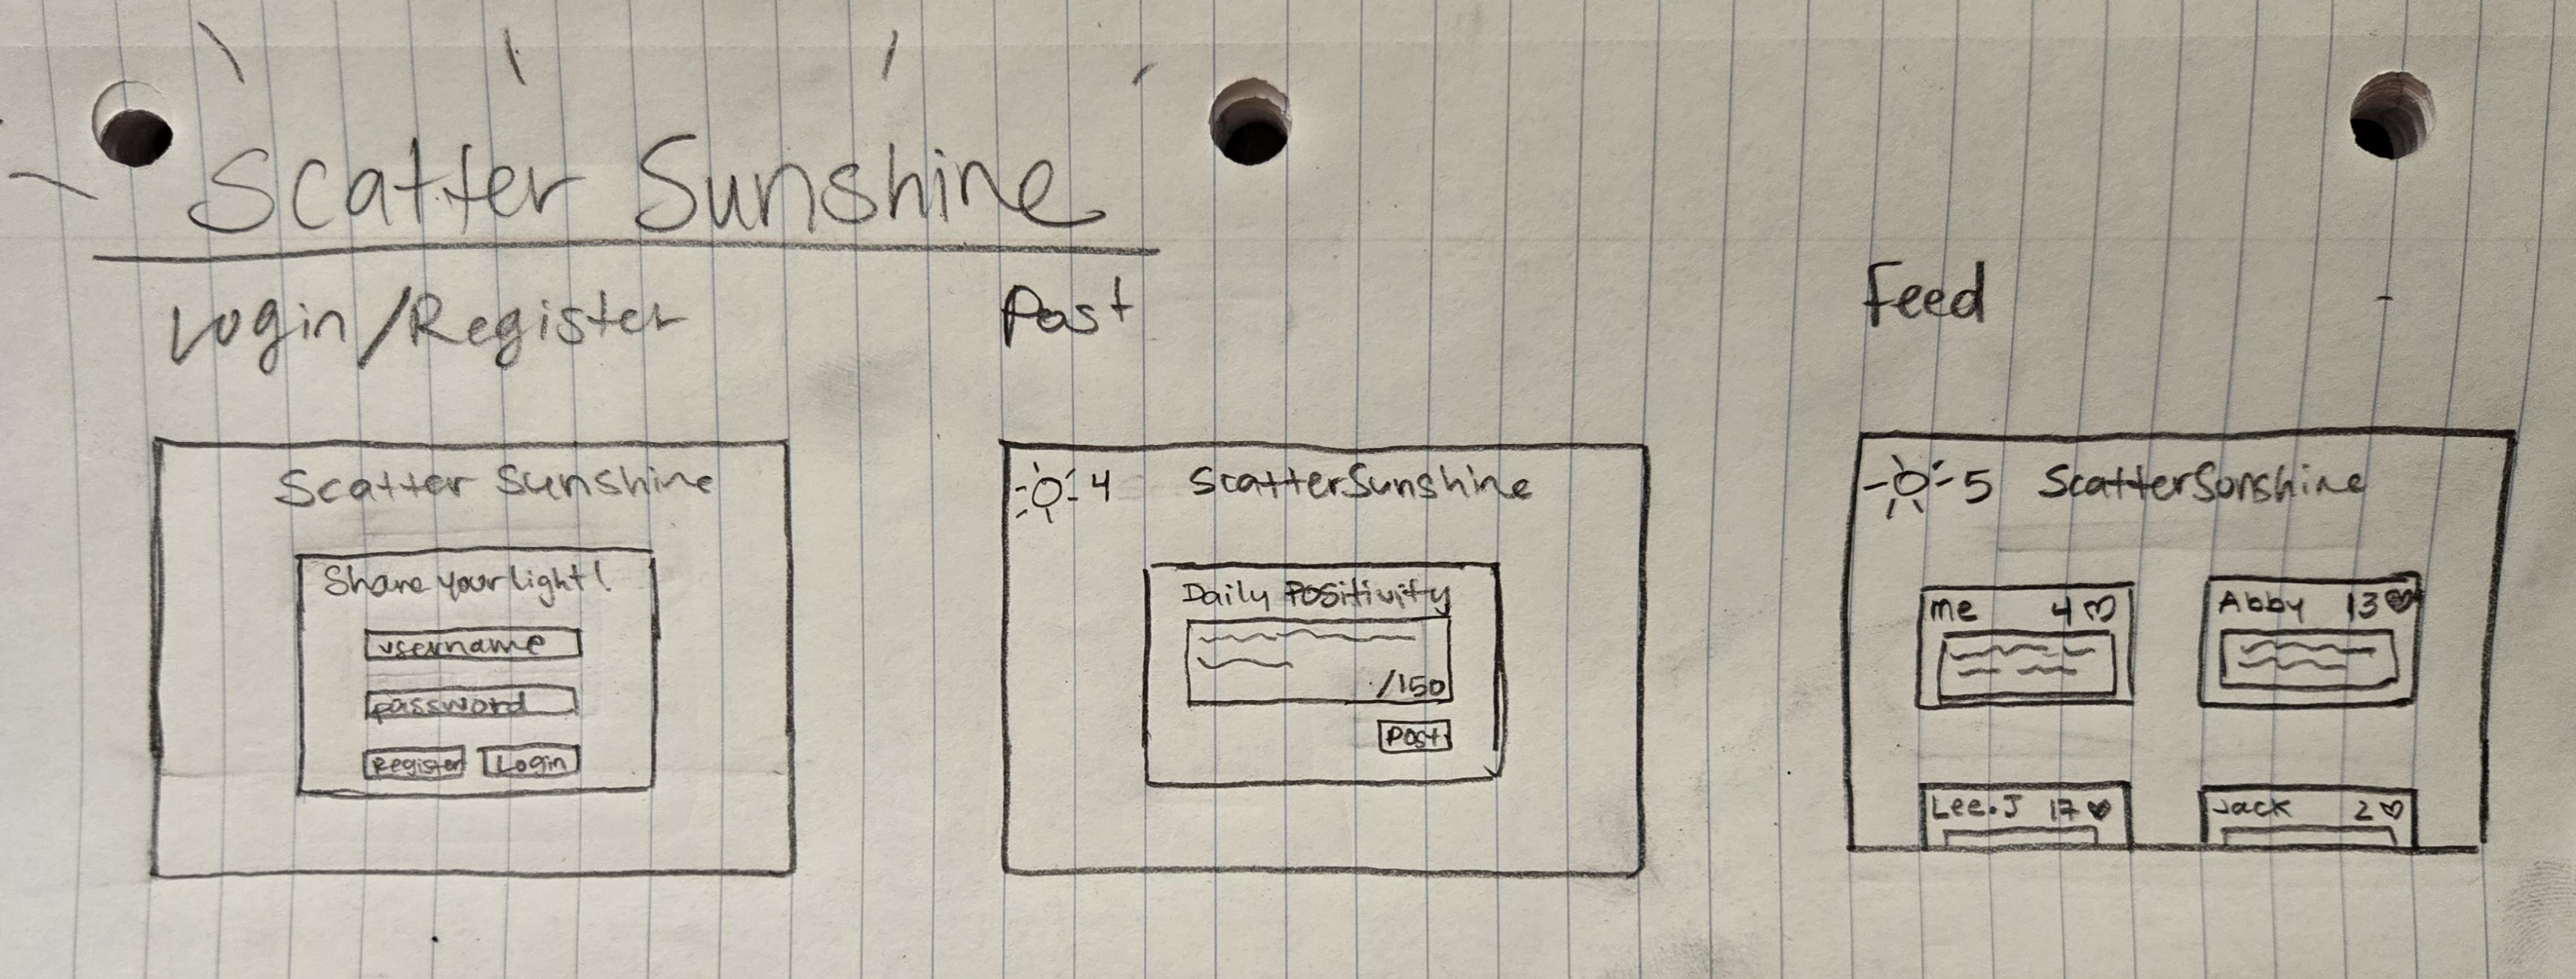 Scatter Sunshine
Login/Register
Scatter Sunshine
Share your light!
username
password
Register Login
Post
4 ScatterSunshine
Daily Positivity
/150
Post
Feed
5 ScatterSunshine
me 4
Abby 13
Lee.J 17
Jack 2